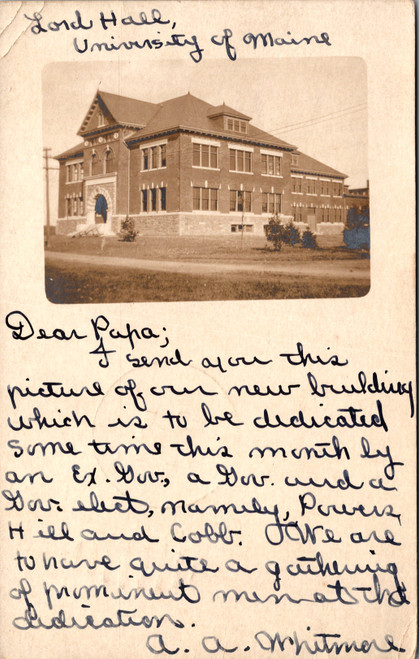 Lord Hall,
University of Maine
Dear Papa;
I send you this
picture of our new building
which is to be dedicated
some time this month by
an Ex. Gov., a Gov. and a
Gov. elect, namely, Powers,
Hill and Cobb. We are
to have quite a gathering
of prominent men at the
dedication.
A. A. Whitmore.